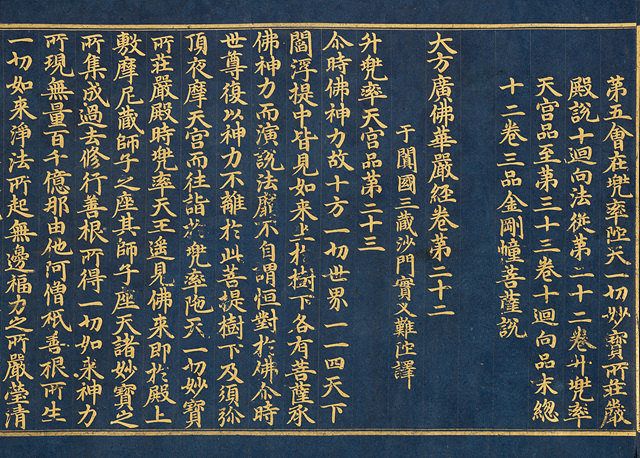 第五會在兜率陁天一切妙寶所莊嚴
殿說十迴向法從第二十二卷升兜率
天宮品至第三十三卷十迴向品末總
十二卷三品金剛幢菩薩說
大方廣佛華嚴經卷第二十二
于闐國三藏沙門實叉難陁譯
升兜率天宮品第二十三
尒時佛神力故十方一切世界一一四天下
閻浮提中皆見如來上於樹下各有菩薩承
佛神力而演說法靡不自謂恒對於佛尒時
世尊復以神力不離於此菩提樹下及須弥
頂夜摩天宮而往詣於兜率陁天一切妙寶
所莊嚴殿時兜率天王遙見佛來即於殿上
敷摩尼藏師子之座其師子座天諸妙寶之
所集成過去修行善根所得一切如来神力
所現無量百千億那由他阿僧祇善根所生
一切如來淨法所起無邊福力之所嚴瑩清